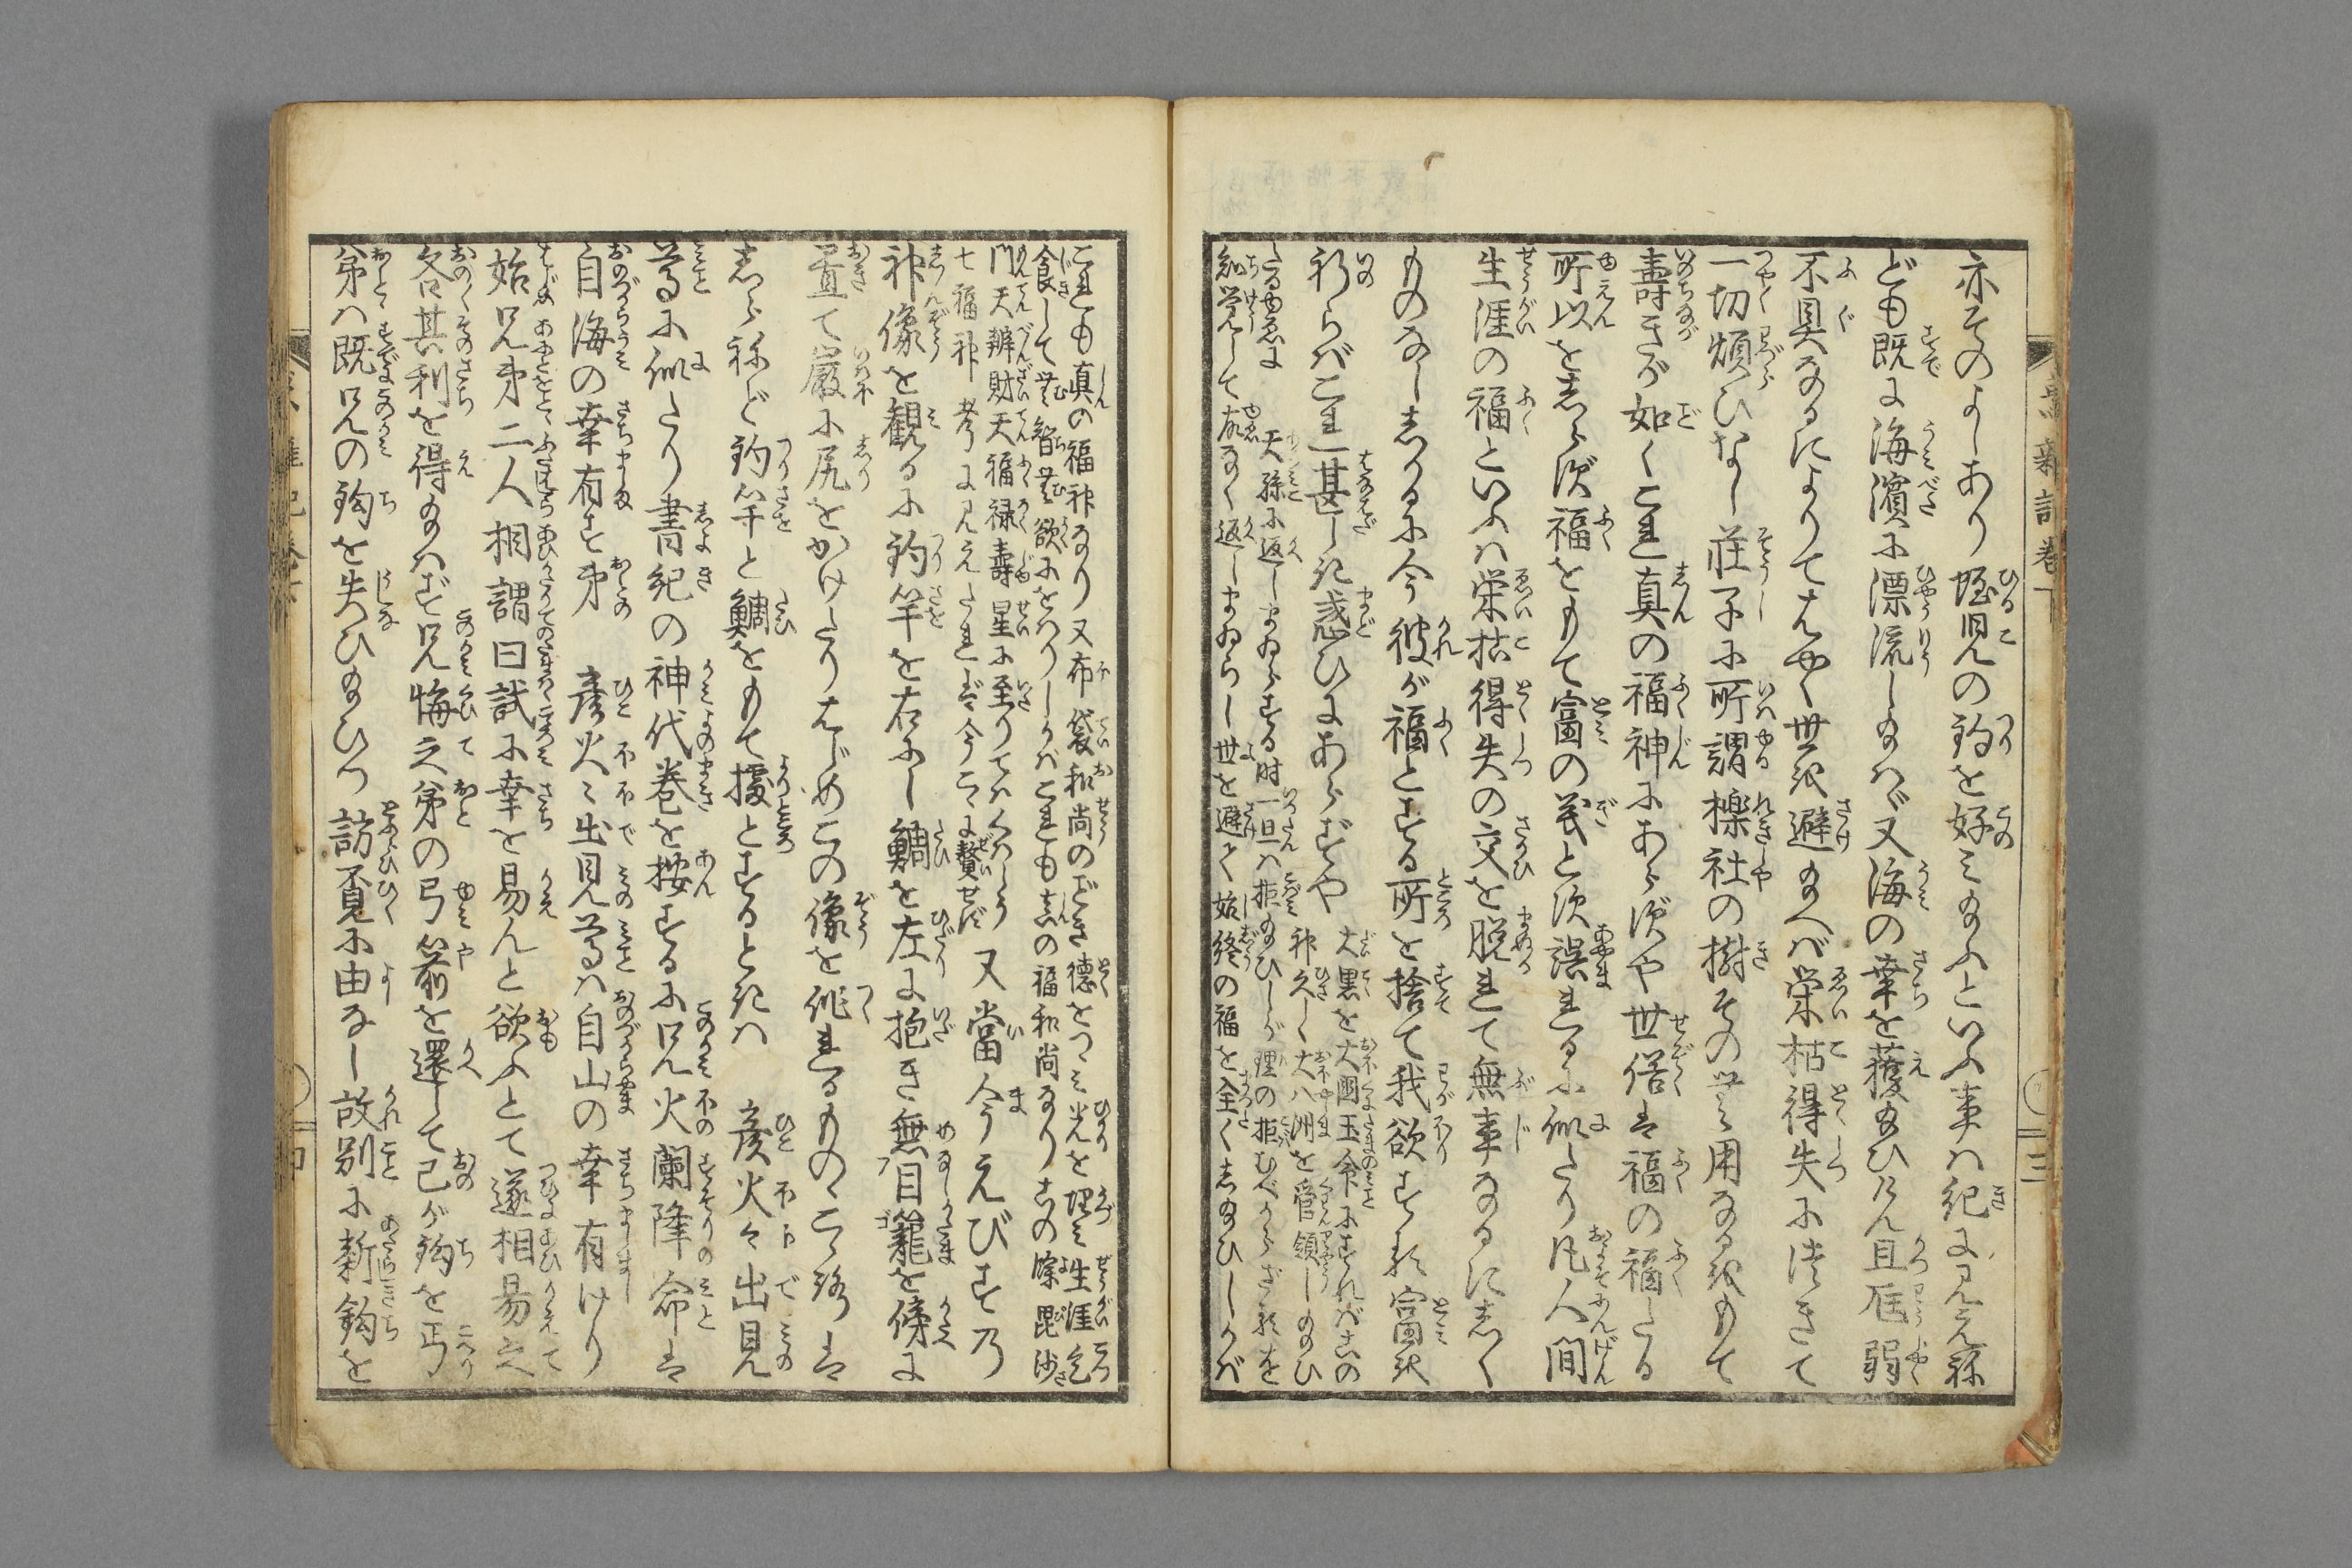 亦そのよしあり蛭児の釣を好みたまふといふ事は紀に見えね
ども既に海濱に漂流したまへば又海の幸を獲たまひけん且尫弱
不具なるによりてはやく世を避たまへば栄枯得失に渉きて
一切煩ひなし荘子に所謂櫟社の樹その无用なるをもて
壽きが如くこれ真の福神にあらずや世俗は福の福たる
所以をしらず福をもて富の義とす誤れるに似たり凡人間
生涯の福といふは栄枯得失の交を脱れて無事なるにしく
ものなししかるに今彼が福とする所を捨て我欲する富を
祈らばこれ甚しき惑ひにあらずや
大黒を大國玉命にすればこの
神久しく大八洲を管領したまひ
たるゆゑに 天孫に返しまゐらする時一旦は拒たまひしが理の拒むべからざるを
知覚して故なく返しまゐらし世を避て始終の福を全くしたまひしかば
これも真の福神なり又布袋和尚のごとき徳をつゝみ光を埋み生涯乞
食して無智無欲にをはりしかばこれも真の福和尚なりこの餘毘沙
門天辨財天福禄壽星に至りてはくはしう
七福神考に見えたれば今こゝに贅せず
又當今うえびす乃
神像を観るに釣竿を右にし鯛を左に抱き無目籠を傍に
置て巌に尻をかけたりはじめこの像を作れるものゝこゝろは
しらねど釣竿と鯛をもて據とするときは 彦火々出見
尊に似たり書紀の神代巻を按ずるに兄火闌降命は
自海の幸有す弟 彦火々出見尊は自山の幸有けり
始兄弟二人相謂曰試に幸を易んと欲ふとて遂相易之
各其利を得たまはず兄悔之弟の弓箭を還して己が鈎を乞
弟は既兄の鈎を失ひたまひつ訪覓に由なし故別に新鈎を